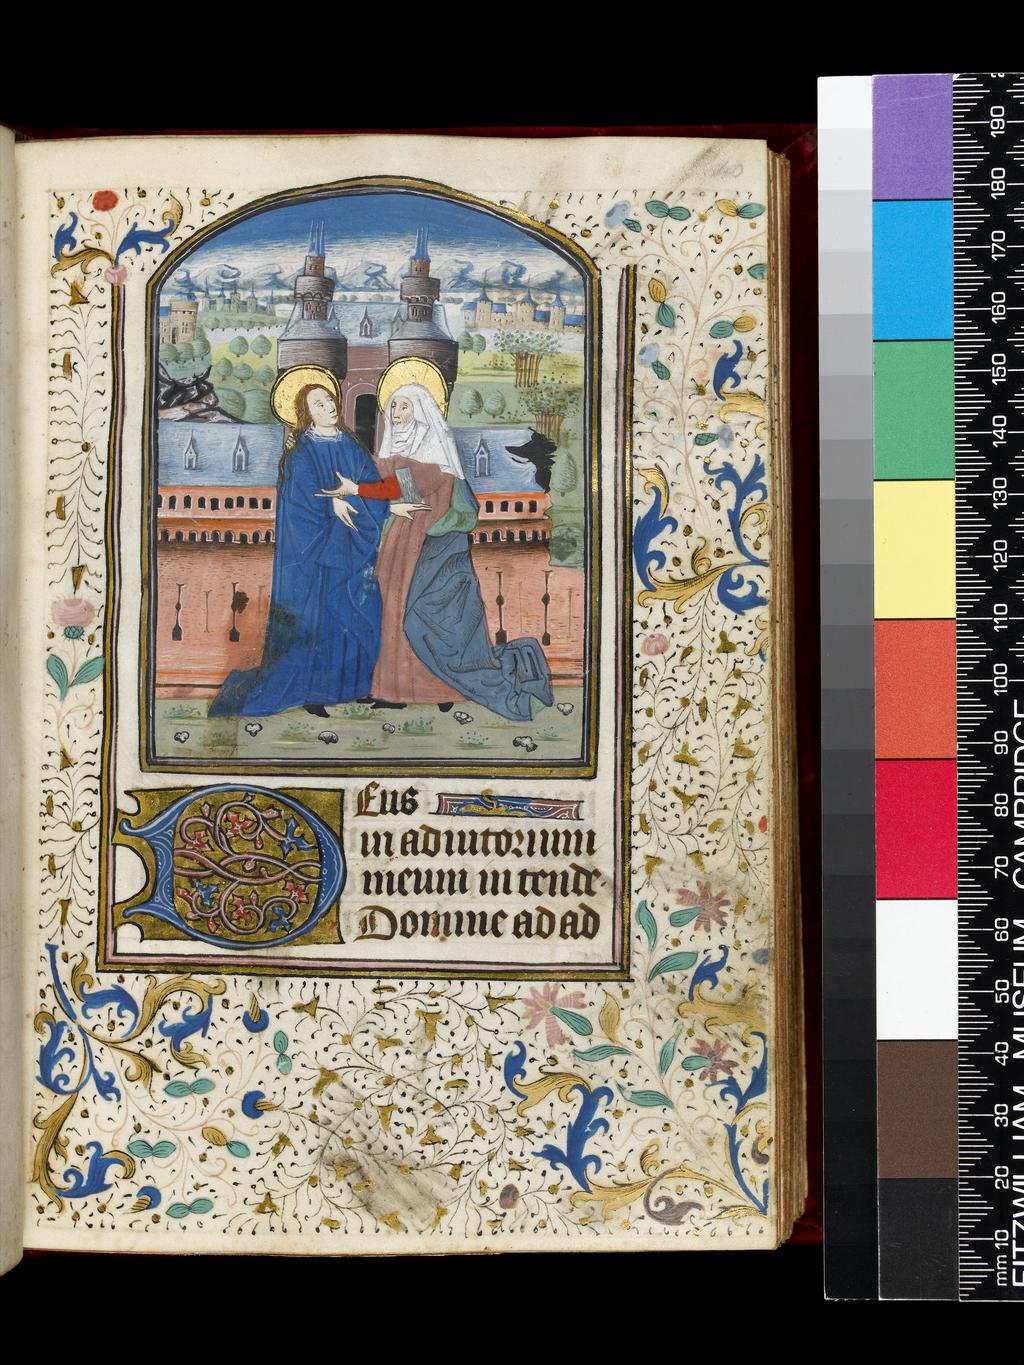 Deus
in adiutorium
meum in tende
Domine ad ad
mm 10 20 30 40 50 60 70 80 90 100 110 120 130 140 150 160 170 180 190
FITZWILLIAM MUSEUM CAMBRIDGE